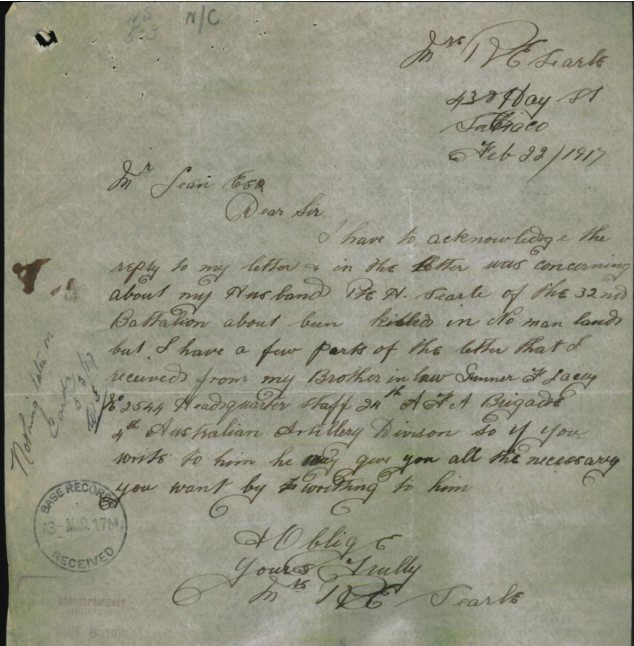 N/C
Mrs R E Searle
438 Hay St
Subiaco
Feb 22/1917
Mr Lean Esq
Dear Sir
I have to acknowledge the
reply to my letter & in the letter was concerning
about my Husband Pte H. Searle of the 32nd
Battalion about been killed in No man lands
but I have a few parts of the letter that I
received from my Brother in law Gunner F Lacey
No 2544 Headquarter Staff 24th A F A Brigade
4th Australian Artillery Divison so if you
write to him he may give you all the necessary
you want by writting to him
I Oblige
Yours Trully
Mrs R E Searle
Nothing later on
Cards
BASE RECORDS
RECEIVED